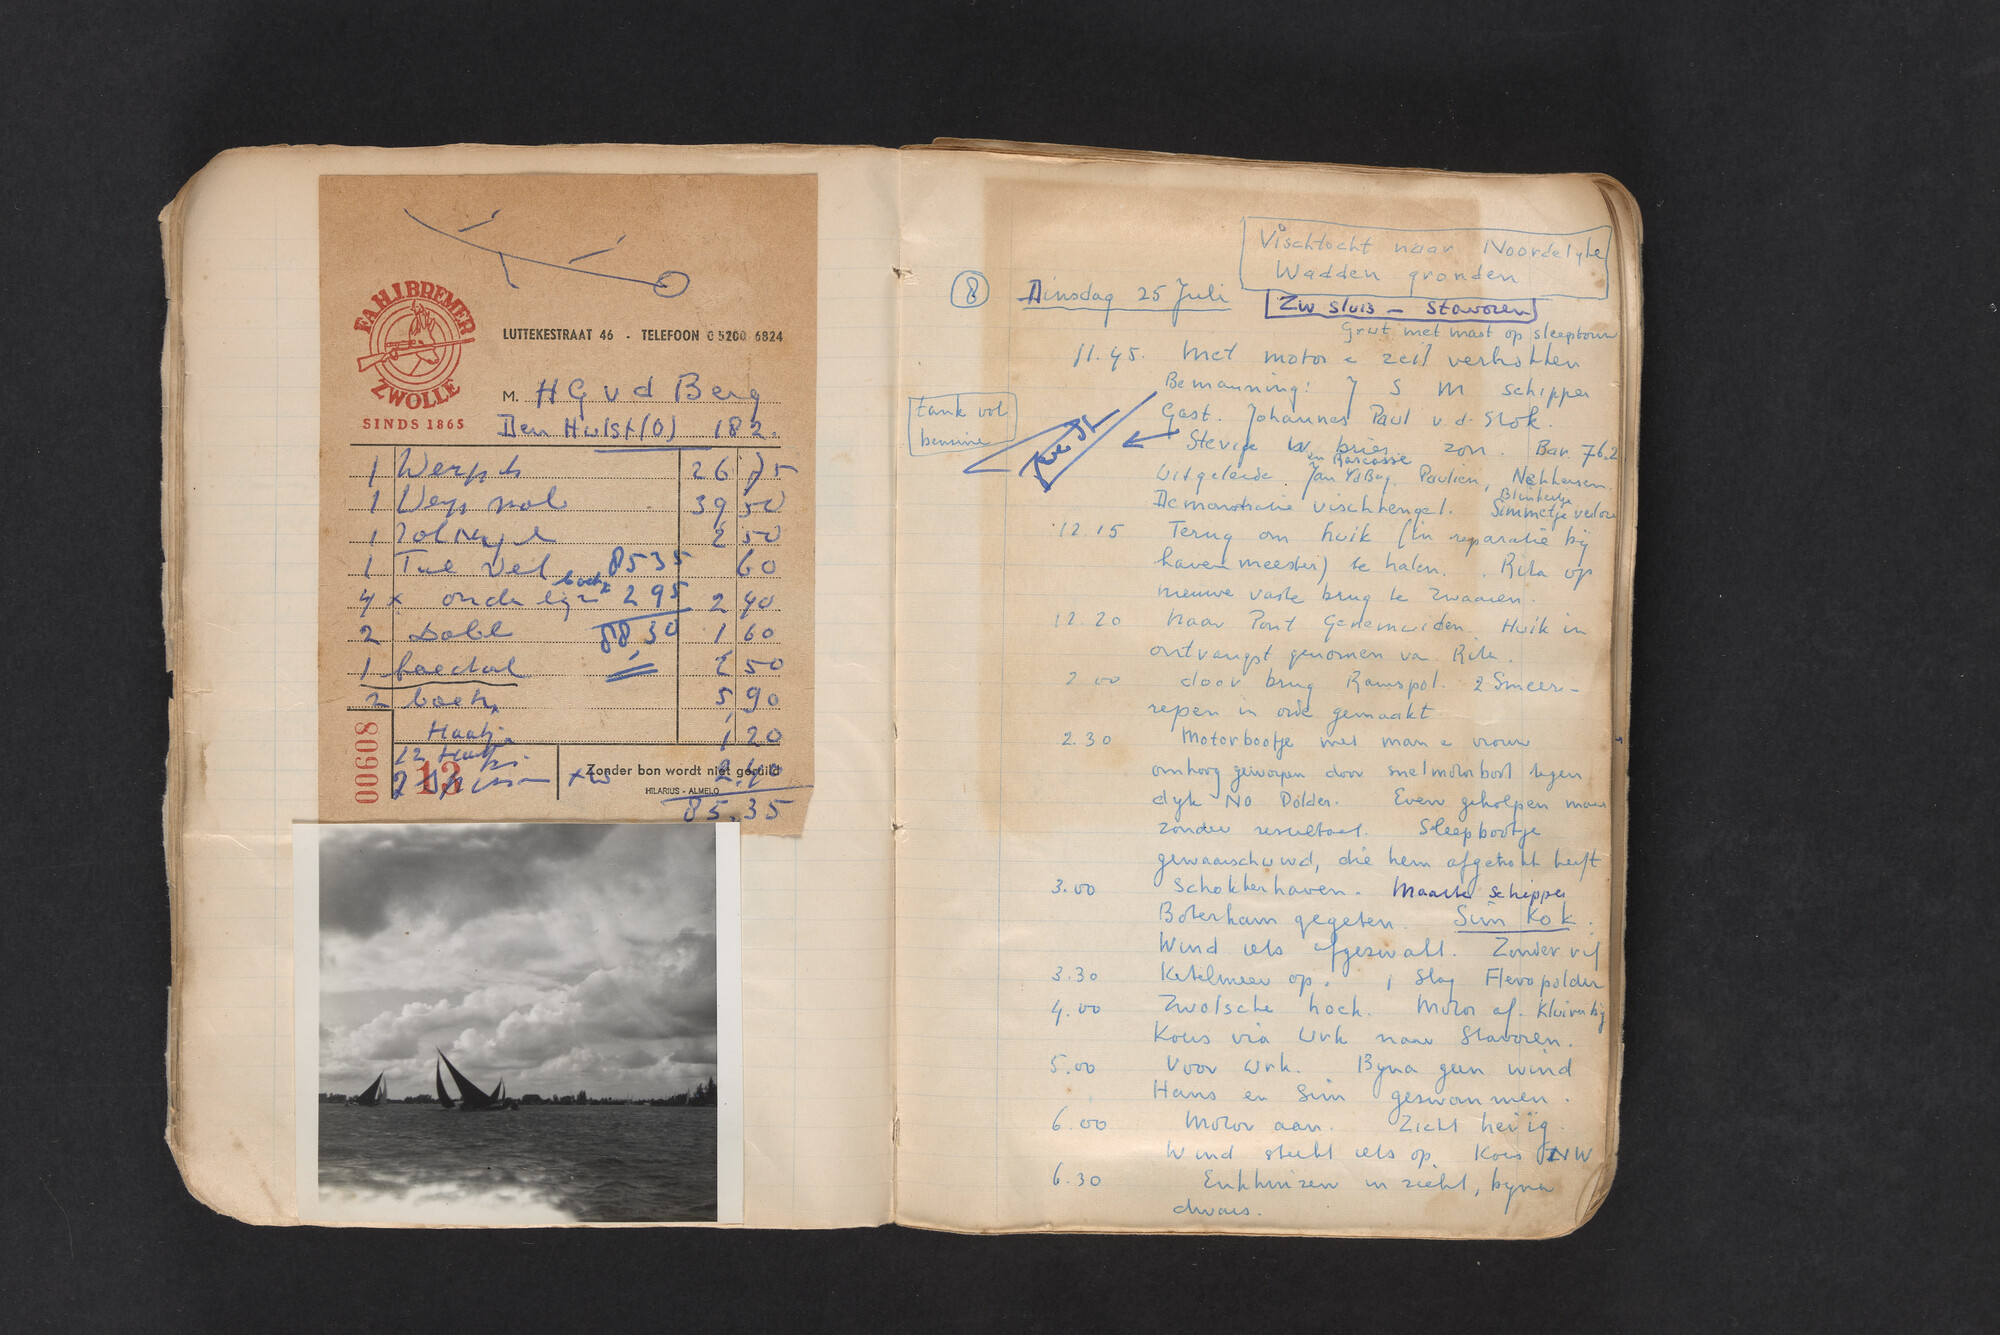 FA H.J. BREMER
ZWOLLE
SINDS 1865
LUTTEKESTRAAT 46 - TELEFOON 0 5200 6824
M. H G v d Berg
Den Hulst (O) 182.
1 Werph 26 75
1 Werp mol 39 50
1 2 50
1 8535 60
4 x onderlijn 295 2 40
2 Dobb 88,30 1 60
1 2 50
2 boek 5 90
Haakj 1 20
12 Haakj
2
Zonder bon wordt niet geruild
2.40
HILARIUS - ALMELO
85,35
00608
13
Vischtocht naar Noordelyke
Wadden gronden
8 Dinsdag 25 Juli
Zw sluis - Stavoren
Grut met mast op sleeptouw
11.45. Met motor e zeil vertrokken
Bemanning: J S M schipper
tank vol
benzine
Gast. Johannes Paul v.d. Slok.
Stevige W bries zon. Bar. 76.2
en Barcasse
Uitgeleide. Jan YdBerg. Paulien, Nekkensen.
Blinkertje
Demonstratie vischhengel. Simmetje verlore
12.15 Terug om huik (In reparatie bij
havenmeester) te halen. Rita op
nieuwe vaste brug te zwaaien.
12.20 Naar Pont Genemuiden. Huik in
ontvangst genomen va Rita.
2.00 door brug Ramspol. 2 Smeer-
repen in orde gemaakt
2.30 Motorbootje met man e vrouw
omhoog geworpen door snelmotorboot tegen
dyk NO Polder. Even geholpen maar
zonder resultaat. Sleepbootje
gewaarschuwd, die hem afgetrokk heeft
3.00 Schokkerhaven. Maarte schipper
Boterham gegeten. Sim Kok.
Wind iets afgezwakt. Zonder rif
3.30 Ketelmeer op. 1 slag Flevopolder
4.00 Zwolsche hoek. Motor af. Kluiver bij
Koers via Urk naar Stavoren.
5.00 Voor Urk. Byna geen wind
Hans en Sim gezwommen.
6.00 Motor aan. Zicht heiig.
Wind steekt iets op. Koers NW
6.30 Enkhuizen in zicht, byna
dwars.